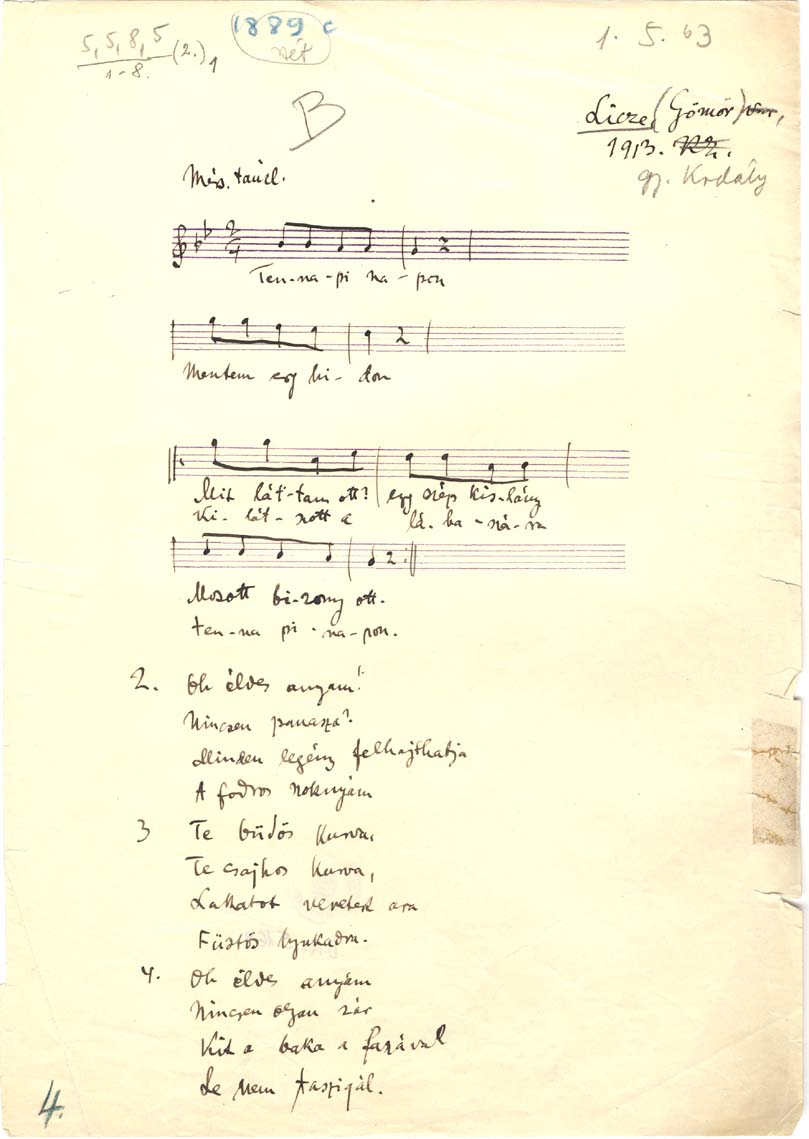 5, 5, 8, 5
1-8. (2.) 1
1889 c
nét
1. 5. 63
B
Licze, (Gömör)
1913.
gy. Kodály
Mérs. táncl.
2/4
Ten-na-pi na-pon
Mentem egy hi-don
Mit lát-tam ott? egy szép kis-lány
Ki-lát-szott a lá-ba-szá-ra
Mosott bi-zony ott.
ten-na pi-na-pon.
2. Oh éldes anyám!
Nincsen panasza?
Minden legény felhajthatja
A fodros szoknyám
3 Te büdös kurva,
Te csajhos kurva,
Lakatot veretek ara
Füstös lyukadra.
4. Oh éldes anyám
Nincsen olyan zár
Kit a baka a faszával
Le nem taszigál.
4.